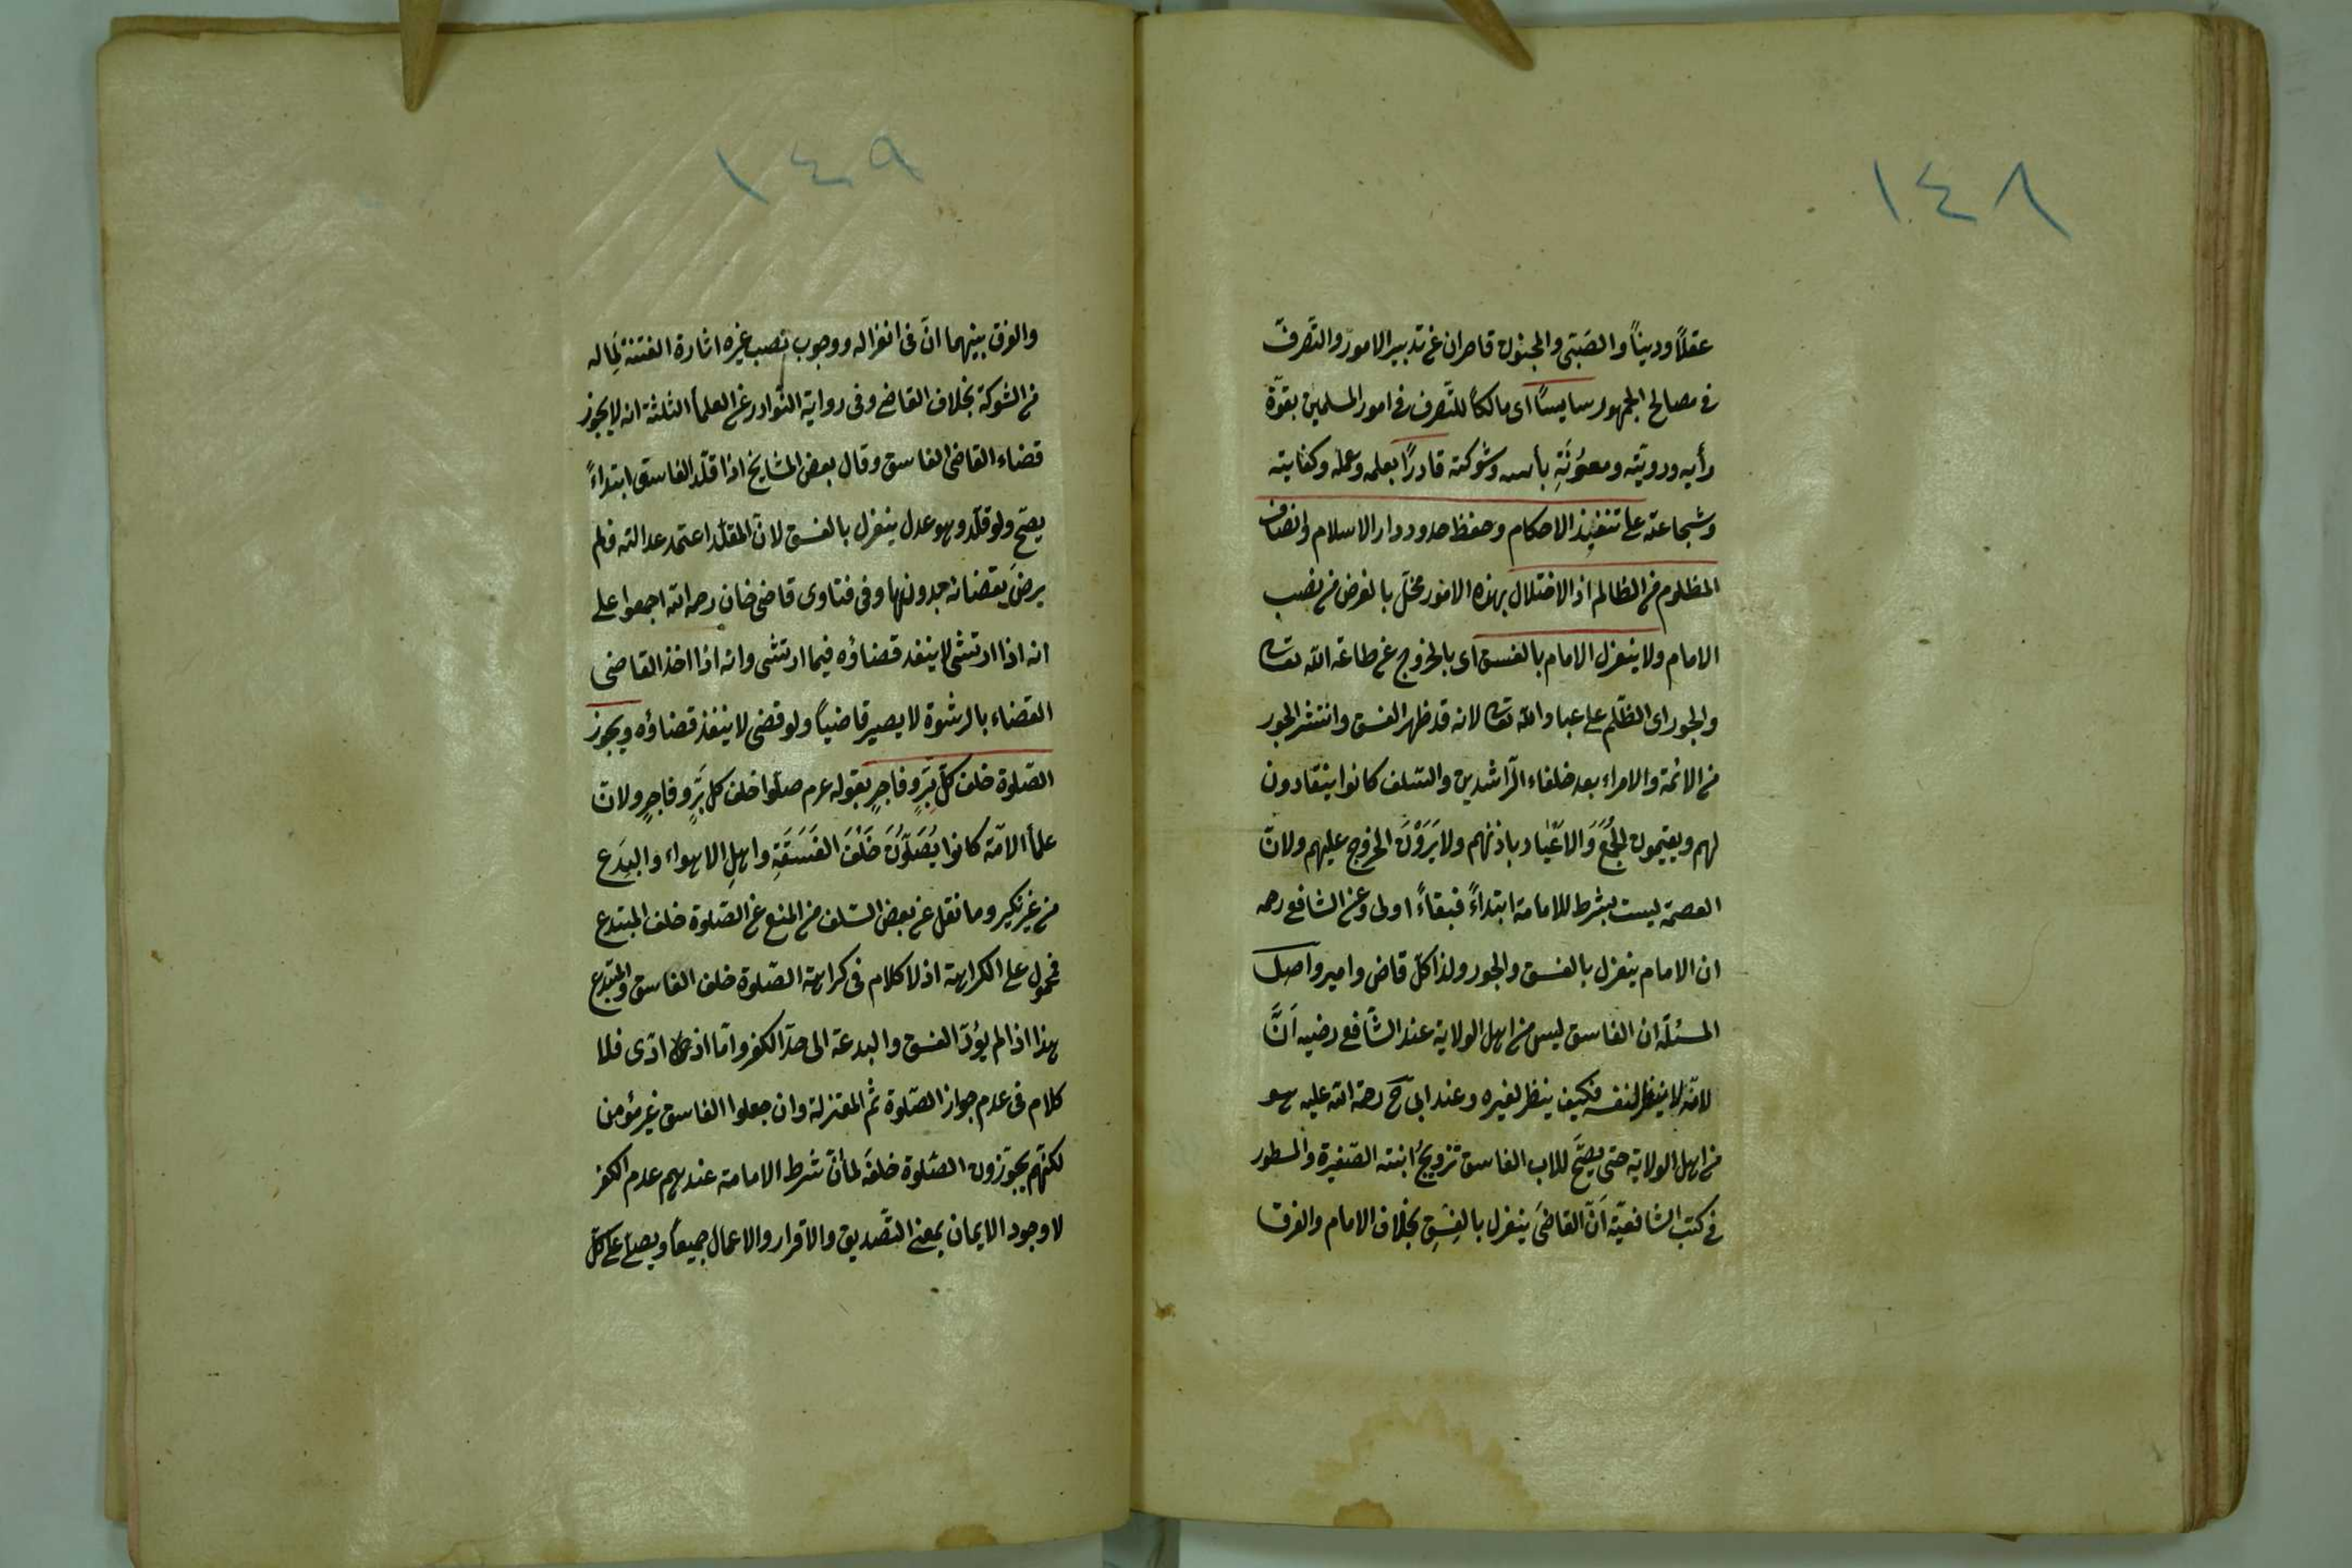 ١٤٨
عقلاً وديناً والصَبّى والمجنون قاصران عن تدبير الامور والتَّصرف
فى مصالح الجمهور سايساً اى مالكاً للتَّصرف فى امور المسلمين بقوّة
رأيه ورويته ومعوُنَةِ بأسه وشوكته قادرًا بعلمه وعمله وكفايته
وشجاعته على تنفيذ الاحكام وحفظ حدود دار الاسلام وانصاف
المظلوم من الظالم اذ الاختلال بهذه الامور مخلّ بالغرض من نصب
الامام ولا ينعزل الامام بالفسق اى بالخروج عن طاعة الله تعالى
والجور اى الظّلم على عباد الله تعالى لانه قد ظهر الفسق وانتشر الجور
من الائمة والامراء بعد خلفاء الرّاشدين والسّلف كانوا ينقادون
لهم ويقيمون الجُمَعَ وَالاَعْيَاد باذنهم ولا يَرَوْنَ الخروج عليهم ولانّ
العصمة ليست بشرط للامامة ابتداءً فبقاءً اولى وعن الشافع رحمه
ان الامام ينعزل بالفسق والجور ولذا كلّ قاض وامير واصل
المسئلة ان الفاسق ليس من اهل الولاية عند الشَّافع رضيه اَنَّ
لانّه لا ينظر لنفسه فكيف ينظر لغيره وعند ابى ح رحمة الله عليه هو
من اهل الولاية حتى يصحّ للاب الفاسق تزويجُ ابنته الصّغيرة والمسطور
فى كتب الشافعيّة اَنّ القاضىَ ينعزل بالفِسْقِ بخلاف الامام والفرق
١٤٩
والفرق بينهما انّ فى انعزاله ووجوب نصب غيره اثارة الفتنة لِمَا له
من الشوكة بخلاف القاضى وفى رواية النّوادر عن العلمأ الثلثة انه لا يجوز
قضاء القاضى الفاسق وقال بعض المشايخ اذا قلّد الفاسق ابتداءً
يصحّ ولو قلّد وهو عدل ينعزل بالفسق لانّ المقلّد اعتمد عدالته فلم
يرضَ بقضائه بدونها وفى فتاوى قاضى خان رحمه الله اجمعوا على
انه اذا ارتشى لا ينفد قضاؤه فيما ارتشى وانه اذا اخذ القاضى
القضاء بالرشوة لا يصير قاضياً ولو قضى لا ينفذ قضاؤه ويجوز
الصّلوة خلف كلّ بَرٍّ وفاجرٍ بقوله عرم صلّوا خلف كل بَرٍّ وفاجرٍ ولانّ
علمأ الامّة كانوا يُصَلّوُنَ خَلْفَ الفَسَقَةِ واهلِ الاهواء والبِدَع
من غير نكير وما نقل عن بعض السّلف من المنع عن الصّلوة خلف المبتدع
فمحمول على الكراهة اذ لا كلام فى كراهة الصّلوة خلف الفاسق والمبتدع
هذا اذا لم يؤدّ الفسق والبدعة الى حدّ الكفر وامّا اذا ادّى فلا
كلام فى عدم جواز الصّلوة ثم المعتزلة وان جعلوا الفاسق غير مؤمن
لكنّهم يجوّزون الصّلوة خلفَه لما انّ شرط الامامة عندهم عدم الكفر
لا وجود الايمان بمعنى التّصديق والاقرار والاعمال جميعاً ويصلى على كلّ